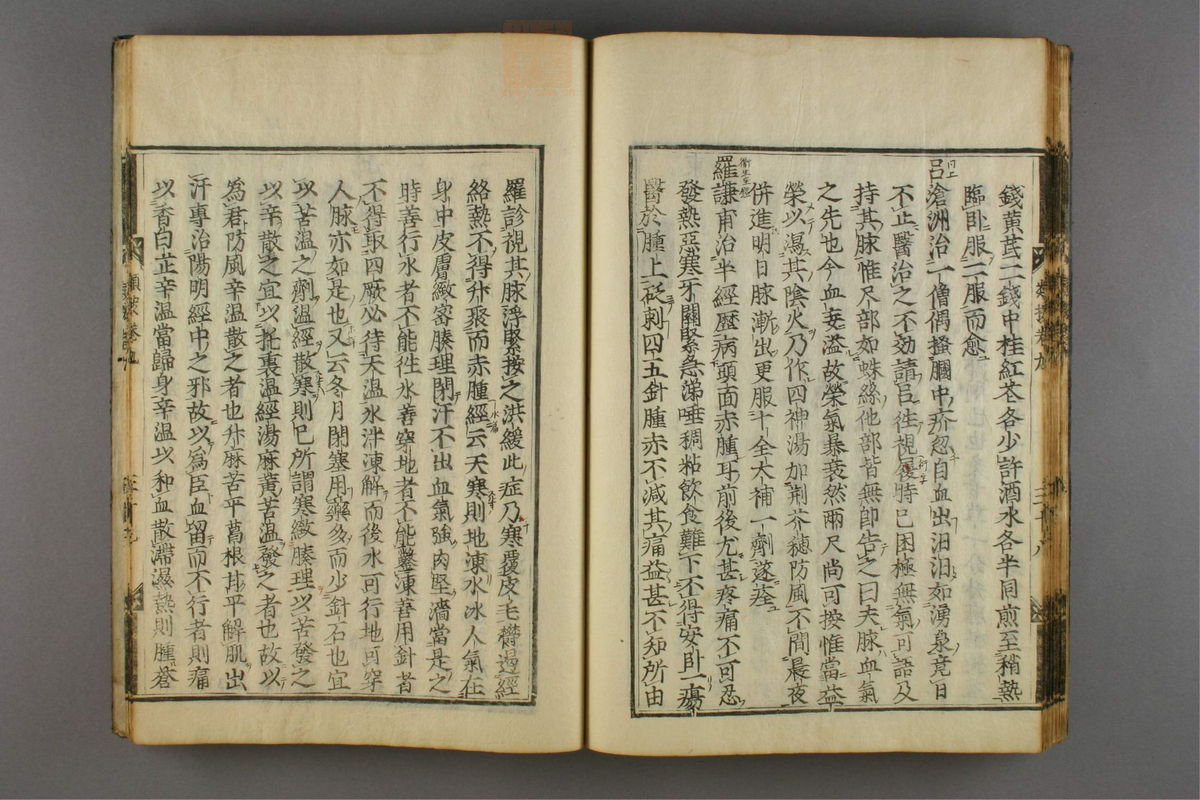 錢黃芪二錢中桂紅花各少許酒水各半同煎至稍熱
臨臥服一服而愈
同上
呂滄洲治一僧偶搔膕中疥忽自血出汩汩如湧泉竟日
不止醫治之不効請呂徃視履時已困極無氣可語及
持其脉惟尺部如蛛絲他部皆無卽告之曰夫脉血氣
之先也今血妄溢故榮氣暴衰然兩尺尚可按惟當益
榮以瀉其陰火乃作四神湯加荆芥穗防風不間晨夜
併進明日脉漸出更服十全大補一劑遂痊
衛生宝鑑
羅謙甫治半經歷病頭面赤腫耳前後尤甚疼痛不可忍
發熱惡寒牙關緊急涕唾稠粘飲食難下不得安卧一瘍
醫於腫上砭刺四五針腫赤不減其痛益甚不知所由
類按卷九
三十八
羅診視其脉浮緊按之洪緩此症乃寒覆皮毛欝遏經
絡熱不得升聚而赤腫經云天寒則地凍水冰人氣在
身中皮膚緻密腠理閉汗不出血氣強肉堅濇當是之
時善行水者不能徃氷善穿地者不能鑿凍善用針者
不得取四厥必待天温氷泮凍解而後水可行地可穿
人脉亦如是也又云冬月閉塞用藥多而少針石也宜
以苦温之劑温經散寒則已所謂寒緻腠理以苦發之
以辛散之宜以托裏温經湯麻黃苦温發之者也故以
為君防風辛温散之者也升麻苦平葛根甘平解肌出
汗專治陽明經中之邪故以為臣血留而不行者則痛
以香白芷辛温當歸身辛温以和血散滯濕熱則腫蒼
類按卷九